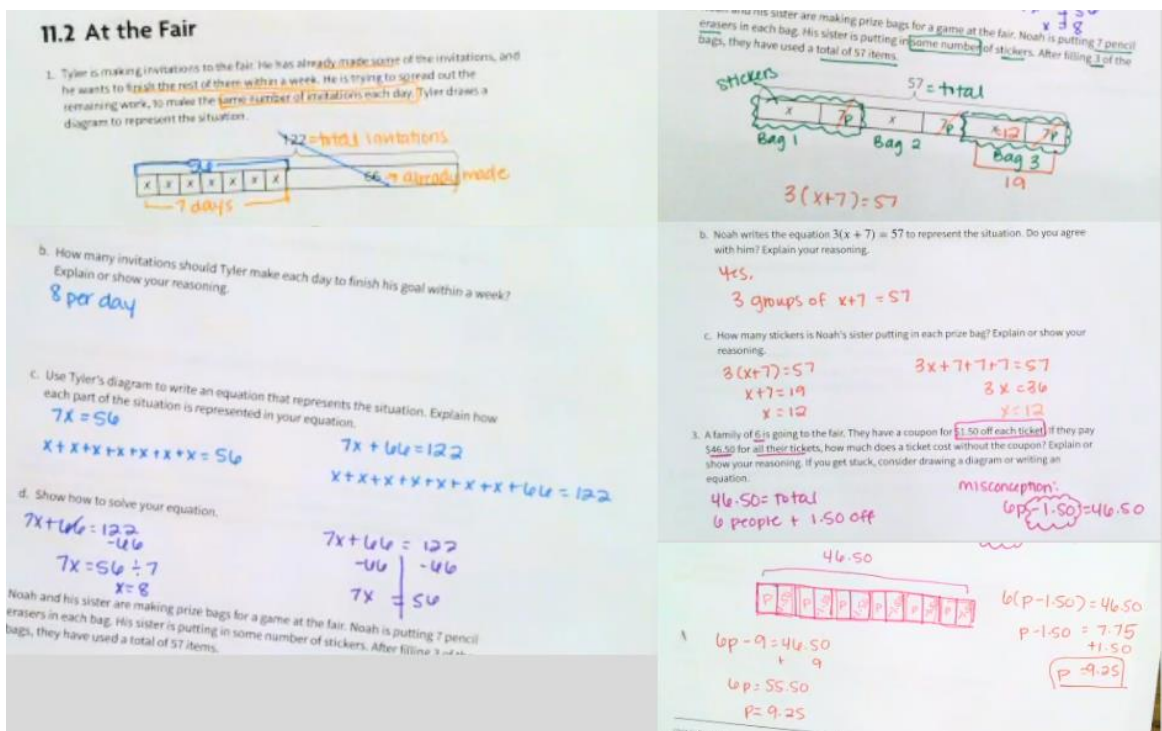 11.2 At the Fair
1. Tyler is making invitations to the fair. He has already made some of the invitations, and
he wants to finish the rest of them within a week. He is trying to spread out the
remaining work, to make the same number of invitations each day. Tyler draws a
diagram to represent the situation.
122 = total invitations
56
x x x x x x x
66 → already made
7 days
b. How many invitations should Tyler make each day to finish his goal within a week?
Explain or show your reasoning.
8 per day
c. Use Tyler's diagram to write an equation that represents the situation. Explain how
each part of the situation is represented in your equation.
7x = 56
7x + 66 = 122
x+x+x+x+x+x+x = 56
x+x+x+x+x+x+x+66 = 122
d. Show how to solve your equation.
7x+66 = 122
-66
7x = 56 ÷ 7
x = 8
7x+66 = 122
-66 -66
7x = 56
Noah and his sister are making prize bags for a game at the fair. Noah is putting 7 pencil
erasers in each bag. His sister is putting in some number of stickers. After filling 3 of the
bags, they have used a total of 57 items.
his sister are making prize bags for a game at the fair. Noah is putting 7 pencil
erasers in each bag. His sister is putting in some number of stickers. After filling 3 of the
bags, they have used a total of 57 items.
stickers
57 = total
x 7p x 7p x 12 7p
Bag 1 Bag 2 Bag 3
19
3(x+7)=57
b. Noah writes the equation 3(x + 7) = 57 to represent the situation. Do you agree
with him? Explain your reasoning.
Yes,
3 groups of x+7 = 57
c. How many stickers is Noah's sister putting in each prize bag? Explain or show your
reasoning.
3(x+7)=57
x+7=19
x = 12
3x+7+7+7=57
3x = 36
x = 12
3. A family of 6 is going to the fair. They have a coupon for $1.50 off each ticket. If they pay
$46.50 for all their tickets, how much does a ticket cost without the coupon? Explain or
show your reasoning. If you get stuck, consider drawing a diagram or writing an
equation.
46.50 = total
6 people + 1.50 off
misconception:
6p-1.50=46.50
46.50
P P P P P P
6p - 9 = 46.50
+ 9
6p = 55.50
p = 9.25
6(p-1.50) = 46.50
p-1.50 = 7.75
+1.50
p = 9.25